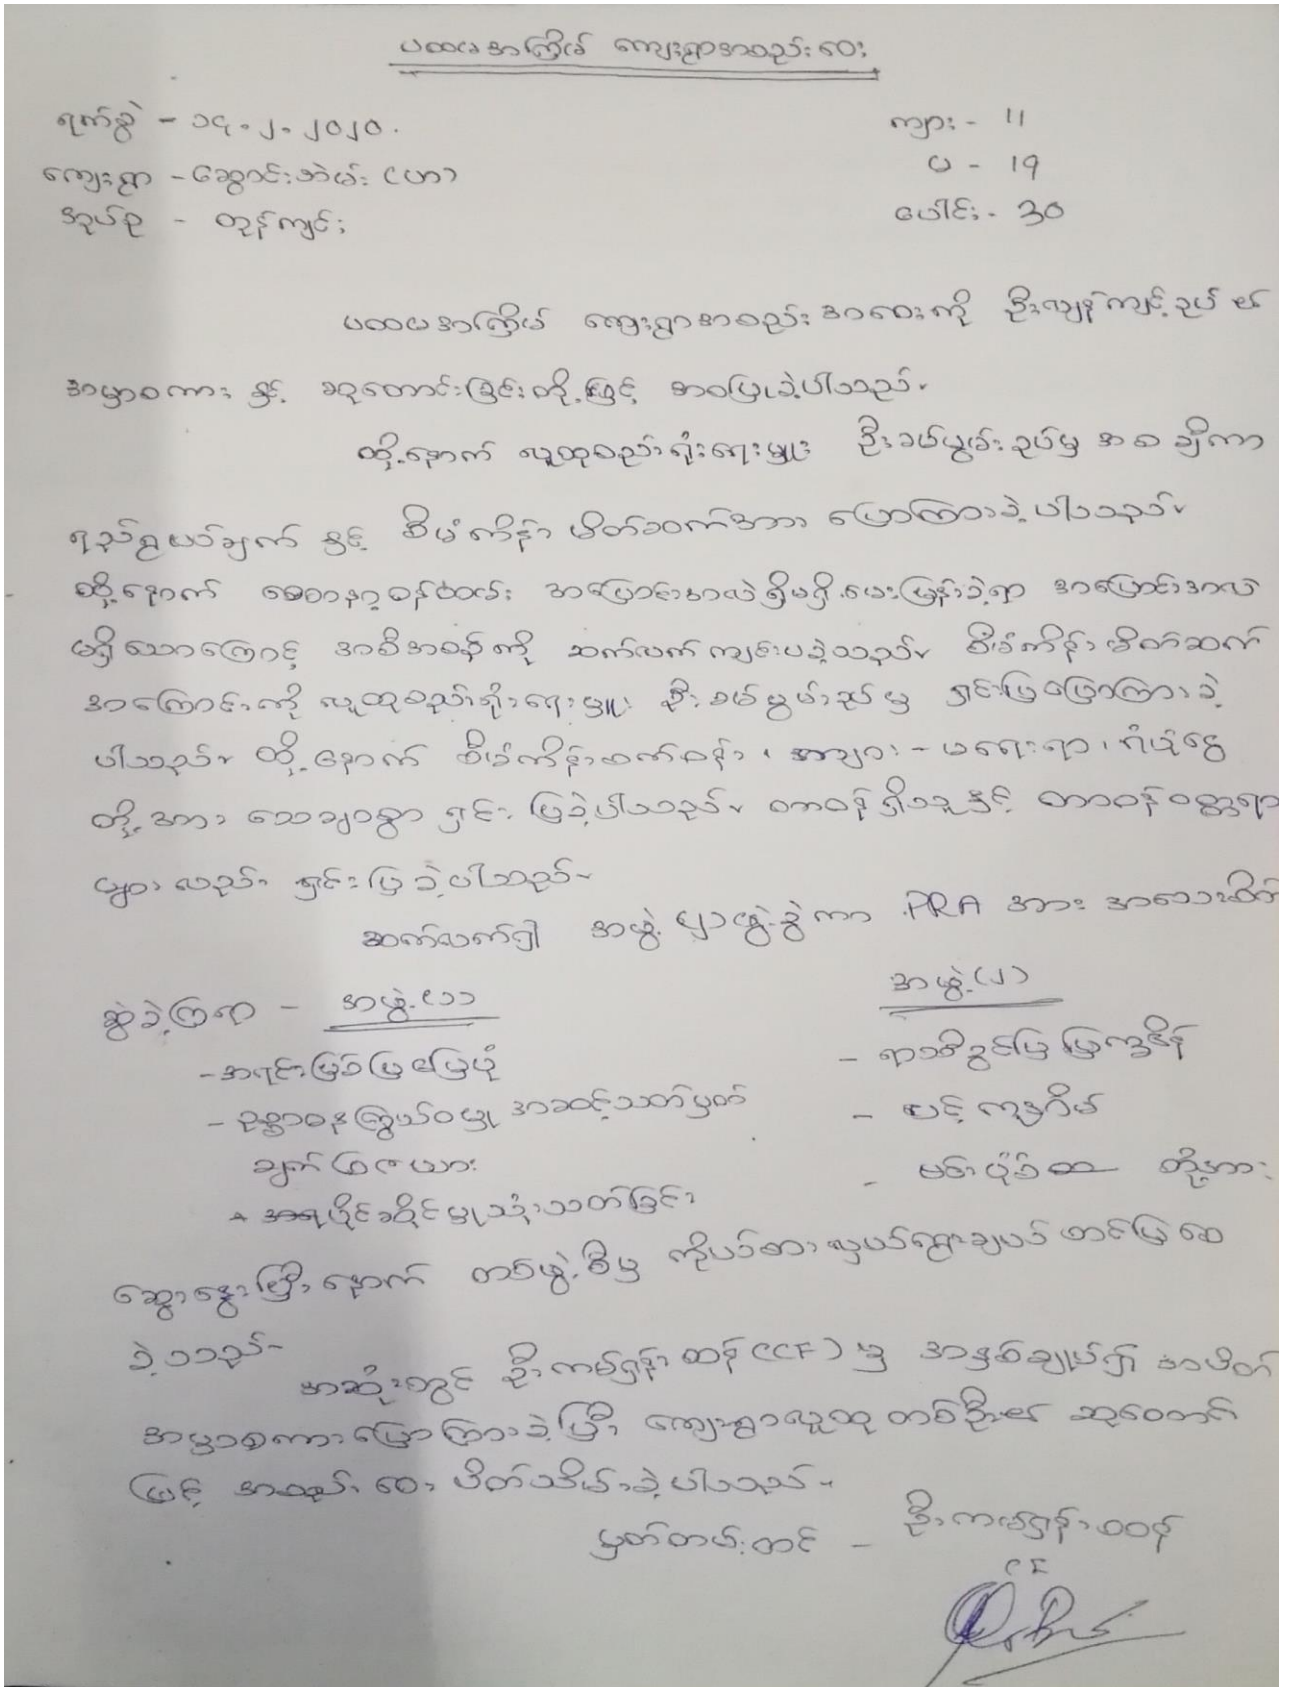 ပထမအကြိမ် ကျေးရွာအစည်းဝေး
ရက်စွဲ - ၁၄.၂.၂၀၂၀.
ကျား - 11
ကျေးရွာ - ဆွောင်းဘဲမ်း (ဟ)
မ - 19
အုပ်စု - တုန်ကျင်း
ပေါင်း - 30
ပထမအကြိမ် ကျေးရွာအစည်းအဝေးကို ဦးလျန်ကျင့်ဥပ်၏
အမှာစကား နှင့် ဆုတောင်းခြင်းတို့ဖြင့် အစပြုခဲ့ပါသည်။
ထို့နောက် လူထုစည်းရုံးရေးမှူး ဦးခမ်မွမ်းဥပ်မှ အစချီကာ
ရည်ရွယ်ချက် နှင့် စီမံကိန်း မိတ်ဆက်အား ပြောကြားခဲ့ပါသည်။
ထို့နောက် စေတနာ့ဝန်ထမ်း အပြောင်းအလဲရှိမရှိ မေးမြန်းခဲ့ရာ အပြောင်းအလဲ
မရှိသောကြောင့် အစီအစဉ်ကို ဆက်လက်ကျင်းပခဲ့သည်။ စီမံကိန်းမိတ်ဆက်
အကြောင်းကို လူထုစည်းရုံးရေးမှူး ဦးခမ်မွမ်းဥပ်မှ ရှင်းပြပြောကြားခဲ့
ပါသည်။ ထို့နောက် စီမံကိန်း၊ အများ - မရေးရာ၊ ရံပုံငွေ
တို့အား သေချာစွာ ရှင်းပြခဲ့ပါသည်။ တာဝန်ရှိသူနှင့် တာဝန်ဝတ္တရာ
များလည်း ရှင်းပြခဲ့ပါသည်။
ဆက်လက်၍ အဖွဲ့များဖွဲ့ခွဲကာ PRA အား အသေးစိတ်
ဆွဲခဲ့ကြရာ - အဖွဲ့(၁) အဖွဲ့(၂)
- အရင်းမြစ်ပြမြေပုံ - ရာသီခွင်ပြ ပြက္ခဒိန်
- ဥစ္စာဓနကြွယ်ဝမှု အဆင့်သတ်မှတ်
ချက် ဇယား - ပင့်ကူအိမ်
- အရပိုင်ဆိုင်မှုသုံးသတ်ခြင်း - တို့အား
ဆွေးနွေးပြီးနောက် တစ်ဖွဲ့စီမှ ကိုယ်စားလှယ်ရွေးချယ် တင်ပြစေ
ခဲ့သည်။
အဆုံးတွင် ဦးကမ်ရှန်းထန် (CF) မှ အနှစ်ချုပ်၍ အပိတ်
အမှာစကားပြောကြားခဲ့ပြီး ကျေးရွာလူထုတစ်ဦး၏ ဆုတောင်း
ဖြင့် အစည်းဝေး ပိတ်သိမ်းခဲ့ပါသည်။
မှတ်တမ်းတင် - ဦးကမ်ရှန်းထန်
CF